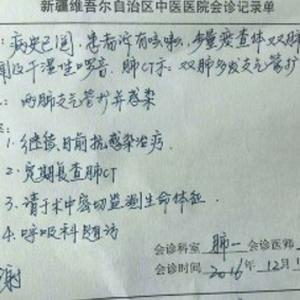 新疆维吾尔自治区中医医院会诊记录单
病史已阅,患者诉有咳嗽,少量痰查体双肺
闻及干湿性啰音.肺CT示:双肺多发支气管扩
:两肺支气管扩并感染
1.继续目前抗感染治疗.
2.定期复查肺CT
3.请于术中密切监测生命体征.
4.呼吸科随访
谢
会诊科室 肺一 会诊医师
会诊时间 2016年12月1